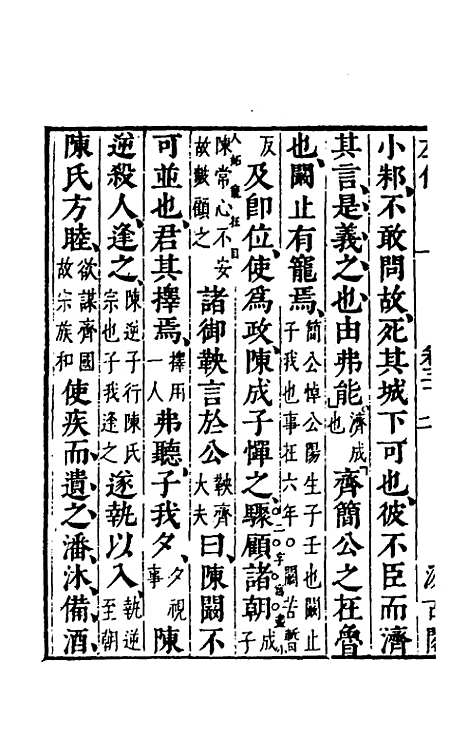 小邾不敢問故死其城下可也彼不臣而濟
其言是義之也由弗能濟成也齊簡公之在魯
也闞止有寵焉簡公悼公陽生子壬也闞止子我也事在六年○闞苦暫反
及卽位使爲政陳成子憚之驟顧諸朝成子
陳常心不安故數顧之諸御鞅言於公鞅齊大夫曰陳闞不
可並也君其擇焉擇用一人弗聽子我夕夕視事陳
逆殺人逢之陳逆子行陳氏宗也子我逢之遂執以入執逆至朝
陳氏方睦欲謀齊國故宗族和使疾而遺之潘沐備酒